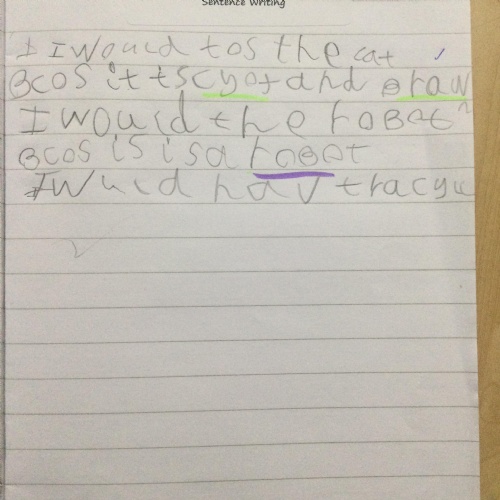 Sentence Writing
I I would tos the cat
Bcos it ts cyot and Braw
I would the roBot
Bcos is is a roBot
I wuld hav tracyu